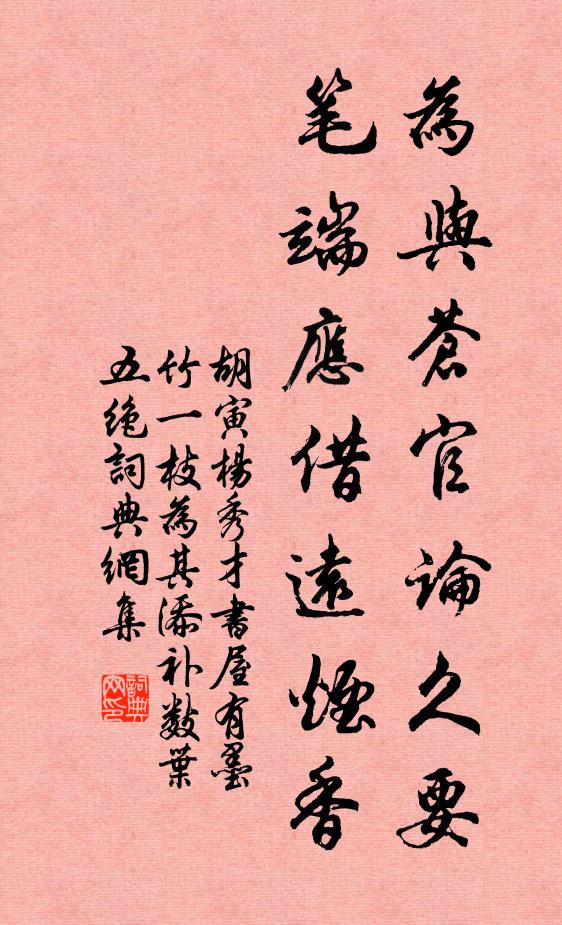 為與蒼官論久要
笔端應借遠煙香
胡寅楊秀才書屋有墨
竹一枝為其添补數葉
五绝詞典網集
詞典
网印